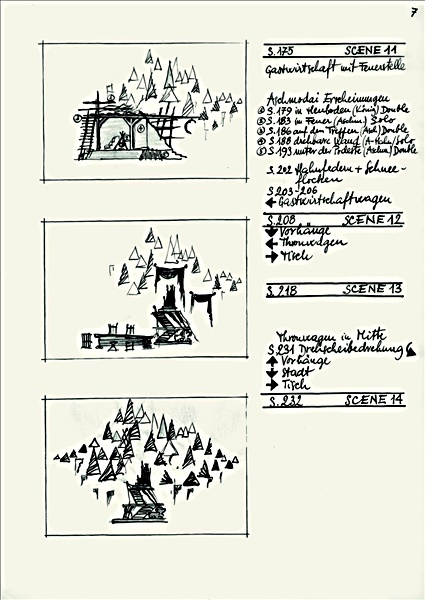 7
S.175 SCENE 11
Gastwirtschaft mit Feuerstelle
Aschmodai Erscheinungen
S.179 in Heuboden (König) Double
S.183 in Feuer (Aschm.) Solo
S.186 auf den Treppen (Asch) Double
S.188 drehbare Wand (A-Hahn/Solo)
S.193 unter der Podeste (Aschm) Double
S.202 Hahnfedern + Schnee-
flocken
S.203-206
← Gastwirtschaftwagen
S.208 SCENE 12
↓ Vorhänge
← Thronwagen
→ Tisch
S.218 SCENE 13
Thronwagen in Mitte
S.231 Drehscheibedrehung
↑ Vorhänge
↓ Stadt
→ Tisch
S.232 SCENE 14